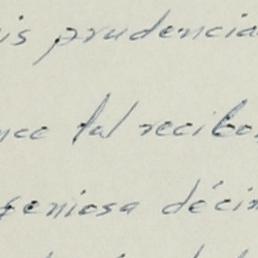 is prudencia
nce tal recibo
geniosa décim